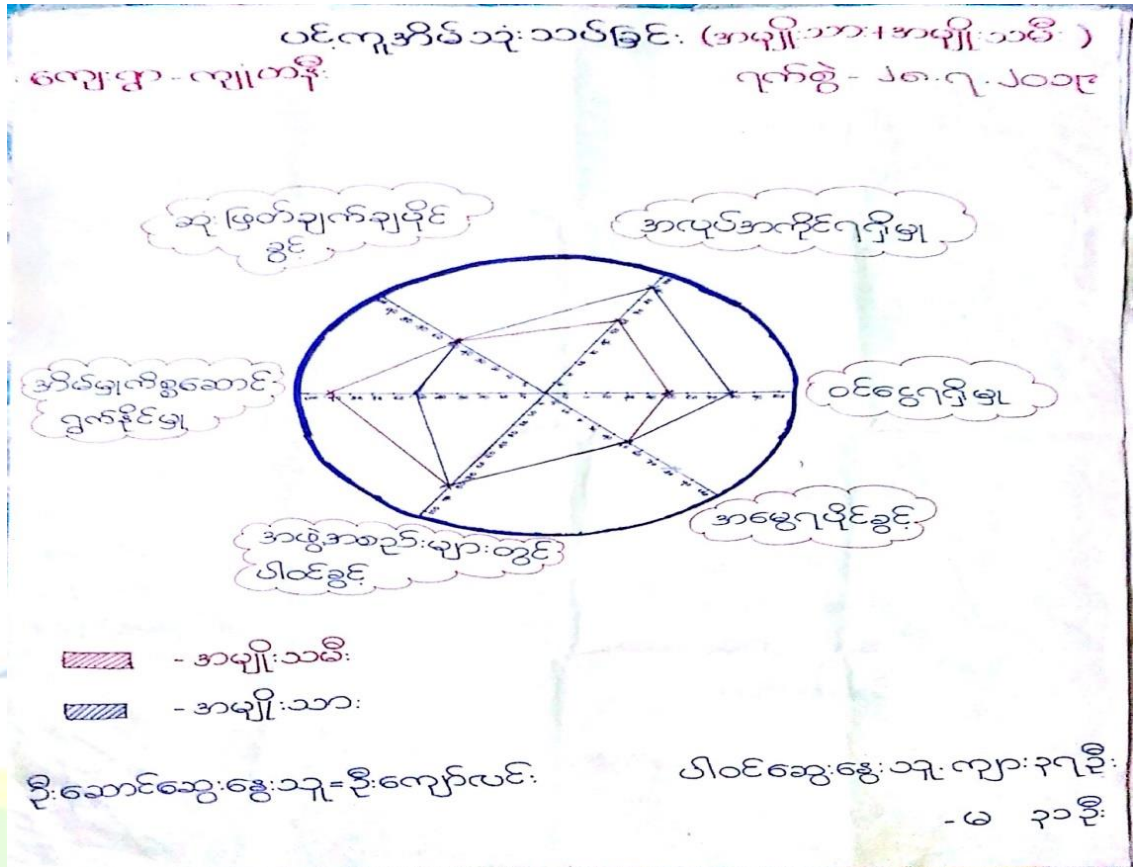 ပင့်ကူအိမ်သုံးသပ်ခြင်း (အမျိုးသား+အမျိုးသမီး)
ကျေးရွာ - ကျုံကနီး
ရက်စွဲ - ၂၈.၇.၂၀၁၉
ဆုံးဖြတ်ချက်ချပိုင်
ခွင့်
အလုပ်အကိုင်ရရှိမှု
အိမ်မှုကိစ္စဆောင်
ရွက်နိုင်မှု
ဝင်ငွေရရှိမှု
အဖွဲ့အစည်းများတွင်
ပါဝင်ခွင့်
အမွေရပိုင်ခွင့်
- အမျိုးသမီး
- အမျိုးသား
ဦးဆောင်ဆွေးနွေးသူ=ဦးကျော်လင်း
ပါဝင်ဆွေးနွေးသူ-ကျား ၃၇ဦး
- မ ၃၁ဦး